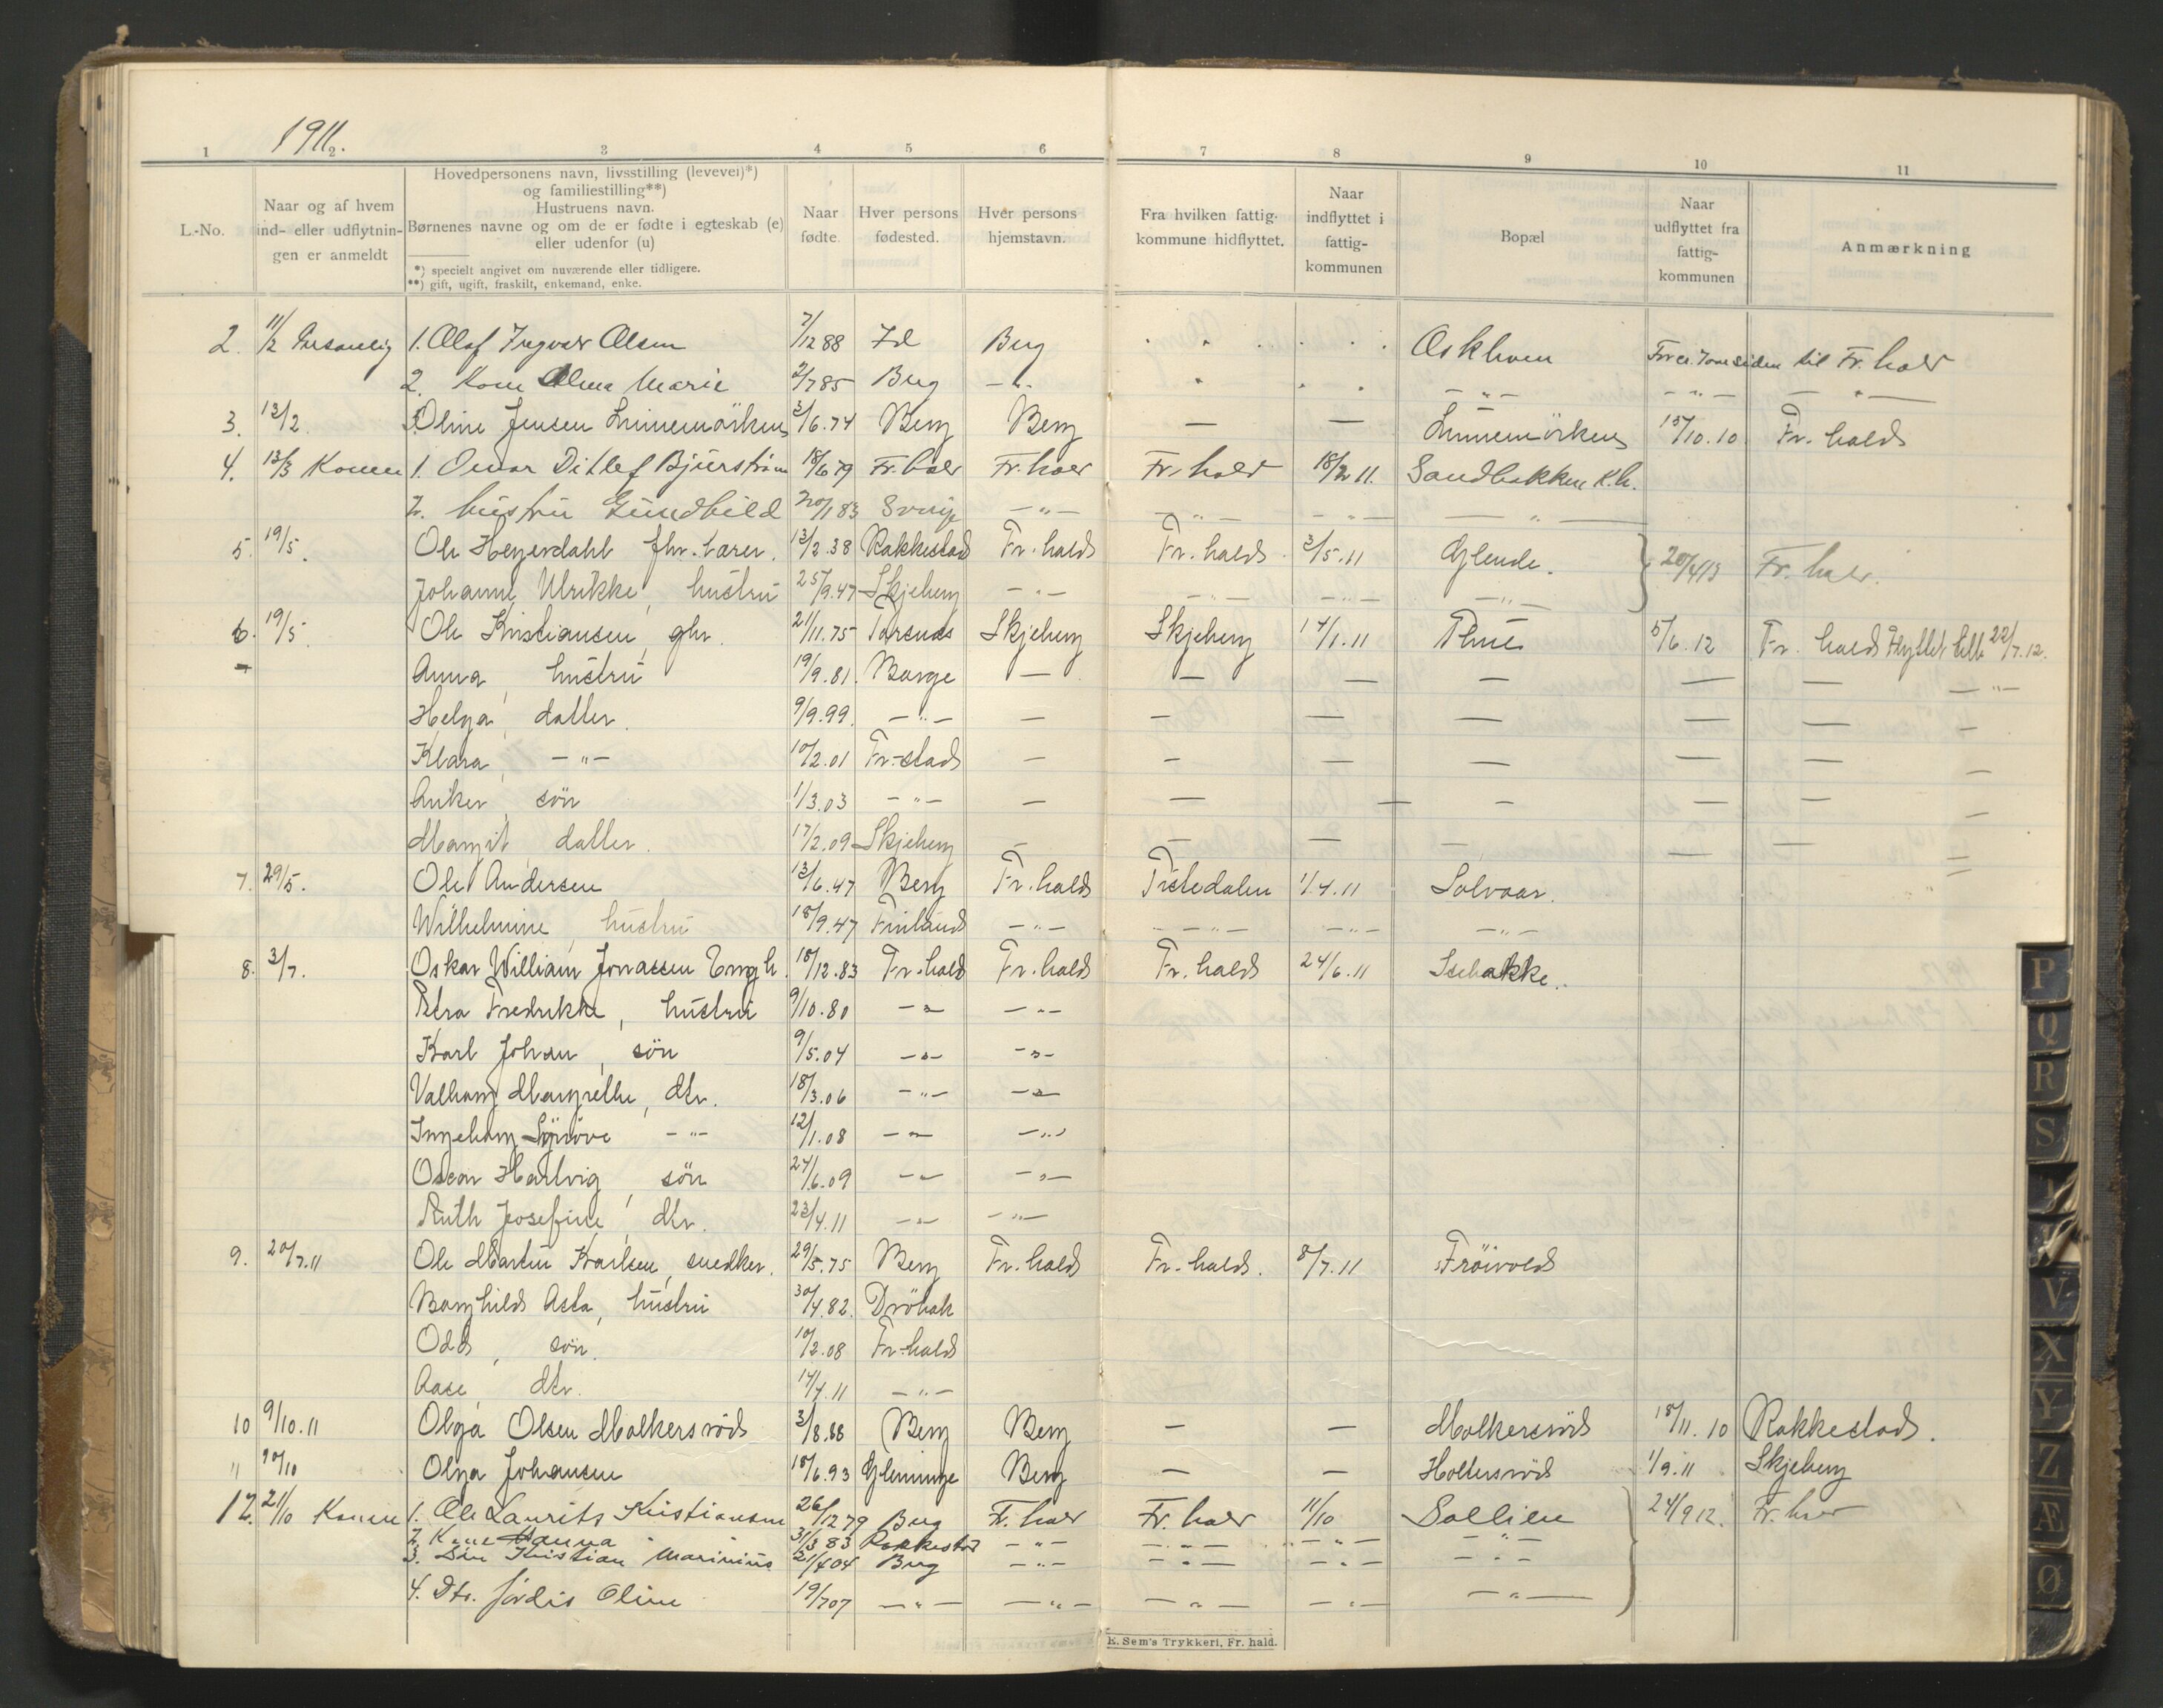 1911.
1 2 3 4 5 6 7 8 9 10 11
L.-No.
Naar og af hvem ind- eller udflytnin- gen er anmeldt
Hovedpersonens navn, livsstilling (levevei)*) og familiestilling**) Hustruens navn. Børnenes navne og om de er fødte i egteskab (e) eller udenfor (u)
*) specielt angivet om nuværende eller tidligere.
**) gift, ugift, fraskilt, enkemand, enke.
Naar fødte.
Hver persons fødested.
Hver persons hjemstavn.
Fra hvilken fattig- kommune hidflyttet.
Naar indflyttet i fattig- kommunen
Bopæl
Naar udflyttet fra fattig- kommunen
Anmærkning
2. 11/2 Personlig 1. Olaf Ingvar Olsen 7/12 88 Id Berg Askhoen For ca. 1 aar siden til Fr.hald
2. Kone Alma Marie 2/7 85 Berg -"- -"- -"- -"-
3. 13/2. Oline Jensen Linnemörken 3/6.74 Berg Berg — — Linnemörken 15/10.10 Fr. hald
4. 13/3 Konen 1. Omar Ditlef Bjurström 18/6 79 Fr.hald Fr.hald Fr.hald 18/2 11. Sandbakken K.h.
2. hustru Gundhild 20/1 83 Sverige -"- -"- -"- -"-
5. 19/5. Ole Heyerdahl fhv. lærer. 13/2.38 Rakkestad Fr.hald Fr.hald 3/5.11 Glende. } 20/4 13 Fr. hald.
Johanne Ulrikke, hustru 25/9.47 Skjeberg -"- -"- -"- -"-
6. 19/5. Ole Kristiansen, gbr. 21/11.75 Torsnes Skjeberg Skjeberg 14/1.11 Thue 5/6.12 Fr. hald Flyttet tilb. 22/7.12.
Anna, hustru 19/9.81. Borge — — — — — — -"-
Helga, datter. 9/9.99. -"- — — — — — — —
Klara, -"- 10/2.01 Fr.stad — — — — — — —
Anker, sön 1/3.03 -"- — — — — — — —
Margit, datter. 17/2.09 Skjeberg — — — — — — —
7. 29/5. Ole Andersen 13/6.47 Berg Fr.hald Tistedalen 1/4.11 Solvaar.
Wilhelmine, hustru 18/9.47 Finland -"- -"- -"- -"-
8. 3/7. Oskar William Jonassen Engh. 18/12.83 Fr.hald Fr.hald Fr.hald 24/6.11 Isebakke.
Petra Fredrikke, hustru 9/10.80 -"- -"-
Karl Johan, sön 9/5.04 -"- -"-
Valborg Margrethe, dtr. 18/3.06 -"- -"-
Ingeborg Synöve -"- 12/1.08 -"- -"-
Oscar Hartvig, sön 24/6.09 -"- -"-
Ruth Josefine, dtr. 23/4.11 -"- -"-
9. 20/7.11 Ole Martin Karlsen, snedker. 29/5.75 Berg Fr.hald Fr.hald. 8/7.11 Fröivold
Borghild Asta, hustru 30/4.82. Dröbak
Odd, sön. 10/2.08 Fr.hald
Aase, dtr. 14/4.11 -"-
10 9/10.11 Olga Olsen Molkersröd 3/8.88 Berg Berg — — Molkersröd 18/11.10 Rakkestad.
" 20/10 Olga Johansen 18/6.93 Glemminge Berg — — Holtersröd 1/9.11 Skjeberg
12. 21/10 Konen 1. Ole Laurits Kristiansen 26/12 79 Berg Fr.hald Fr.hald 11/10 Sollien } 24/9 12. Fr.hald
2. Kone Hanna 31/3 83 Rakkestad -"- -"- -"- -"-
3. Sön Kristian Marinius 21/4 04 Berg -"- -"- -"- -"-
4. Dtr. Jördis Oline 19/7 07 -"- -"- -"- -"- -"-
E. Sem's Trykkeri, Fr. hald.
P
Q
R
S
V
X
Y
Z
Æ
Ø